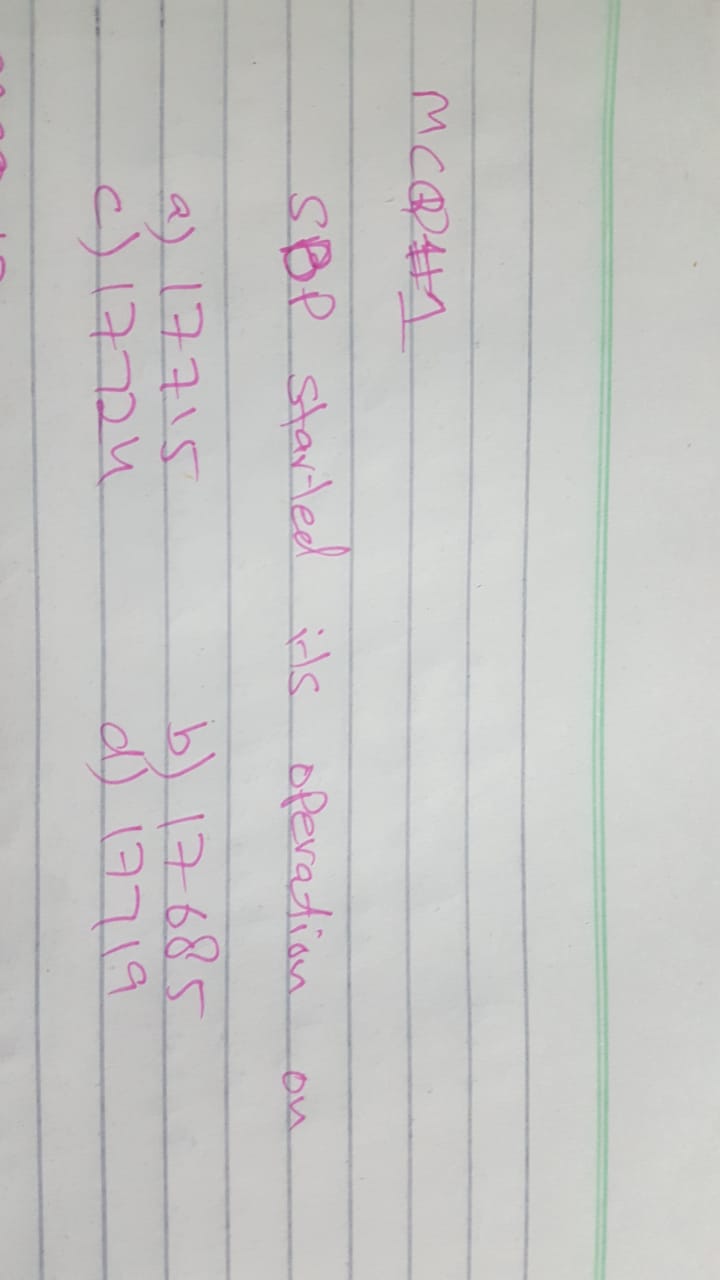 MCQ#1
SBP started its operation on
a) 17715 b) 17685
c) 17724 d) 17719